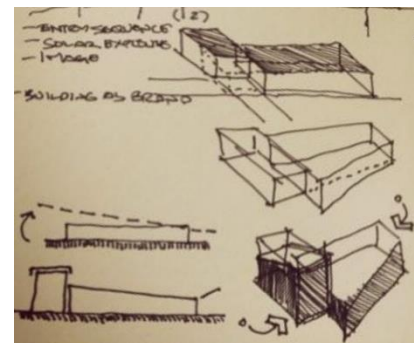 (12)
- ENTRY SEQUENCE
- SOLAR EXPOSURE
- IMAGE
- BUILDING AS BRAND